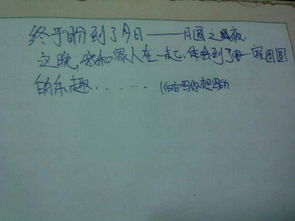 终于盼到了今日——月圆之夜
这晚,我和家人在一起,体会到了一家团圆
的乐趣......